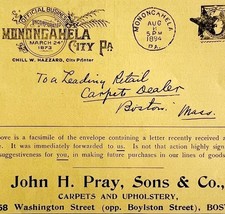 OFFICIAL BUSINESS
MONONGAHELA
MARCH 24th
1873
CITY PA
CHILL W. HAZZARD, City Printer
MONONGAHELA
AUG
5PM
1894
PA.
To a Leading Retail
Carpet Dealer
Boston,
Mass.
ove is a facsimile of the envelope containing a letter recently received a
It was immediately forwarded to us. Is not that action highly signi
suggestiveness for you, in making future purchases in our lines of goods.
John H. Pray, Sons & Co.,
CARPETS AND UPHOLSTERY,
58 Washington Street (opp. Boylston Street) BOST